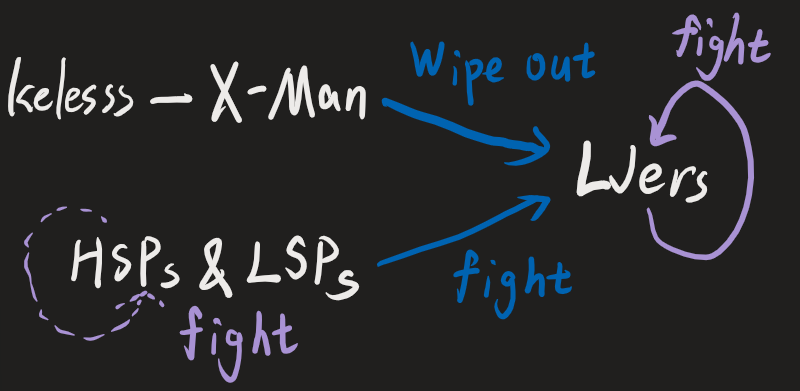 kelesss – X-Man
Wipe out
fight
LJers
HSPs & LSPs
fight
fight